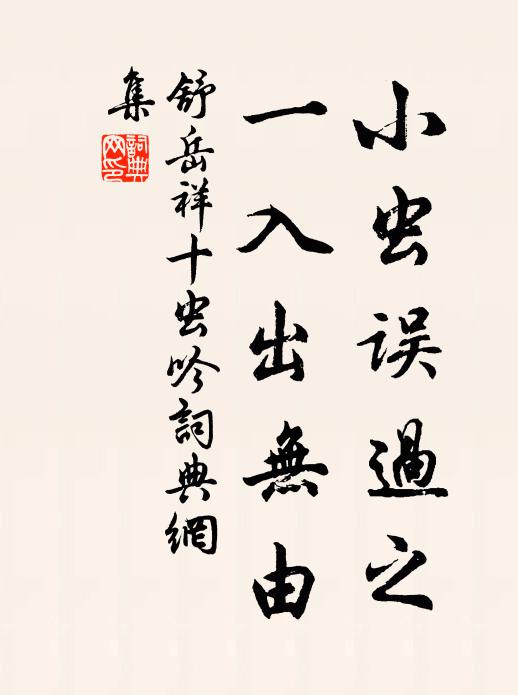 小虫误過之
一入出無由
舒岳祥十虫吟詞典網
集
詞典網印